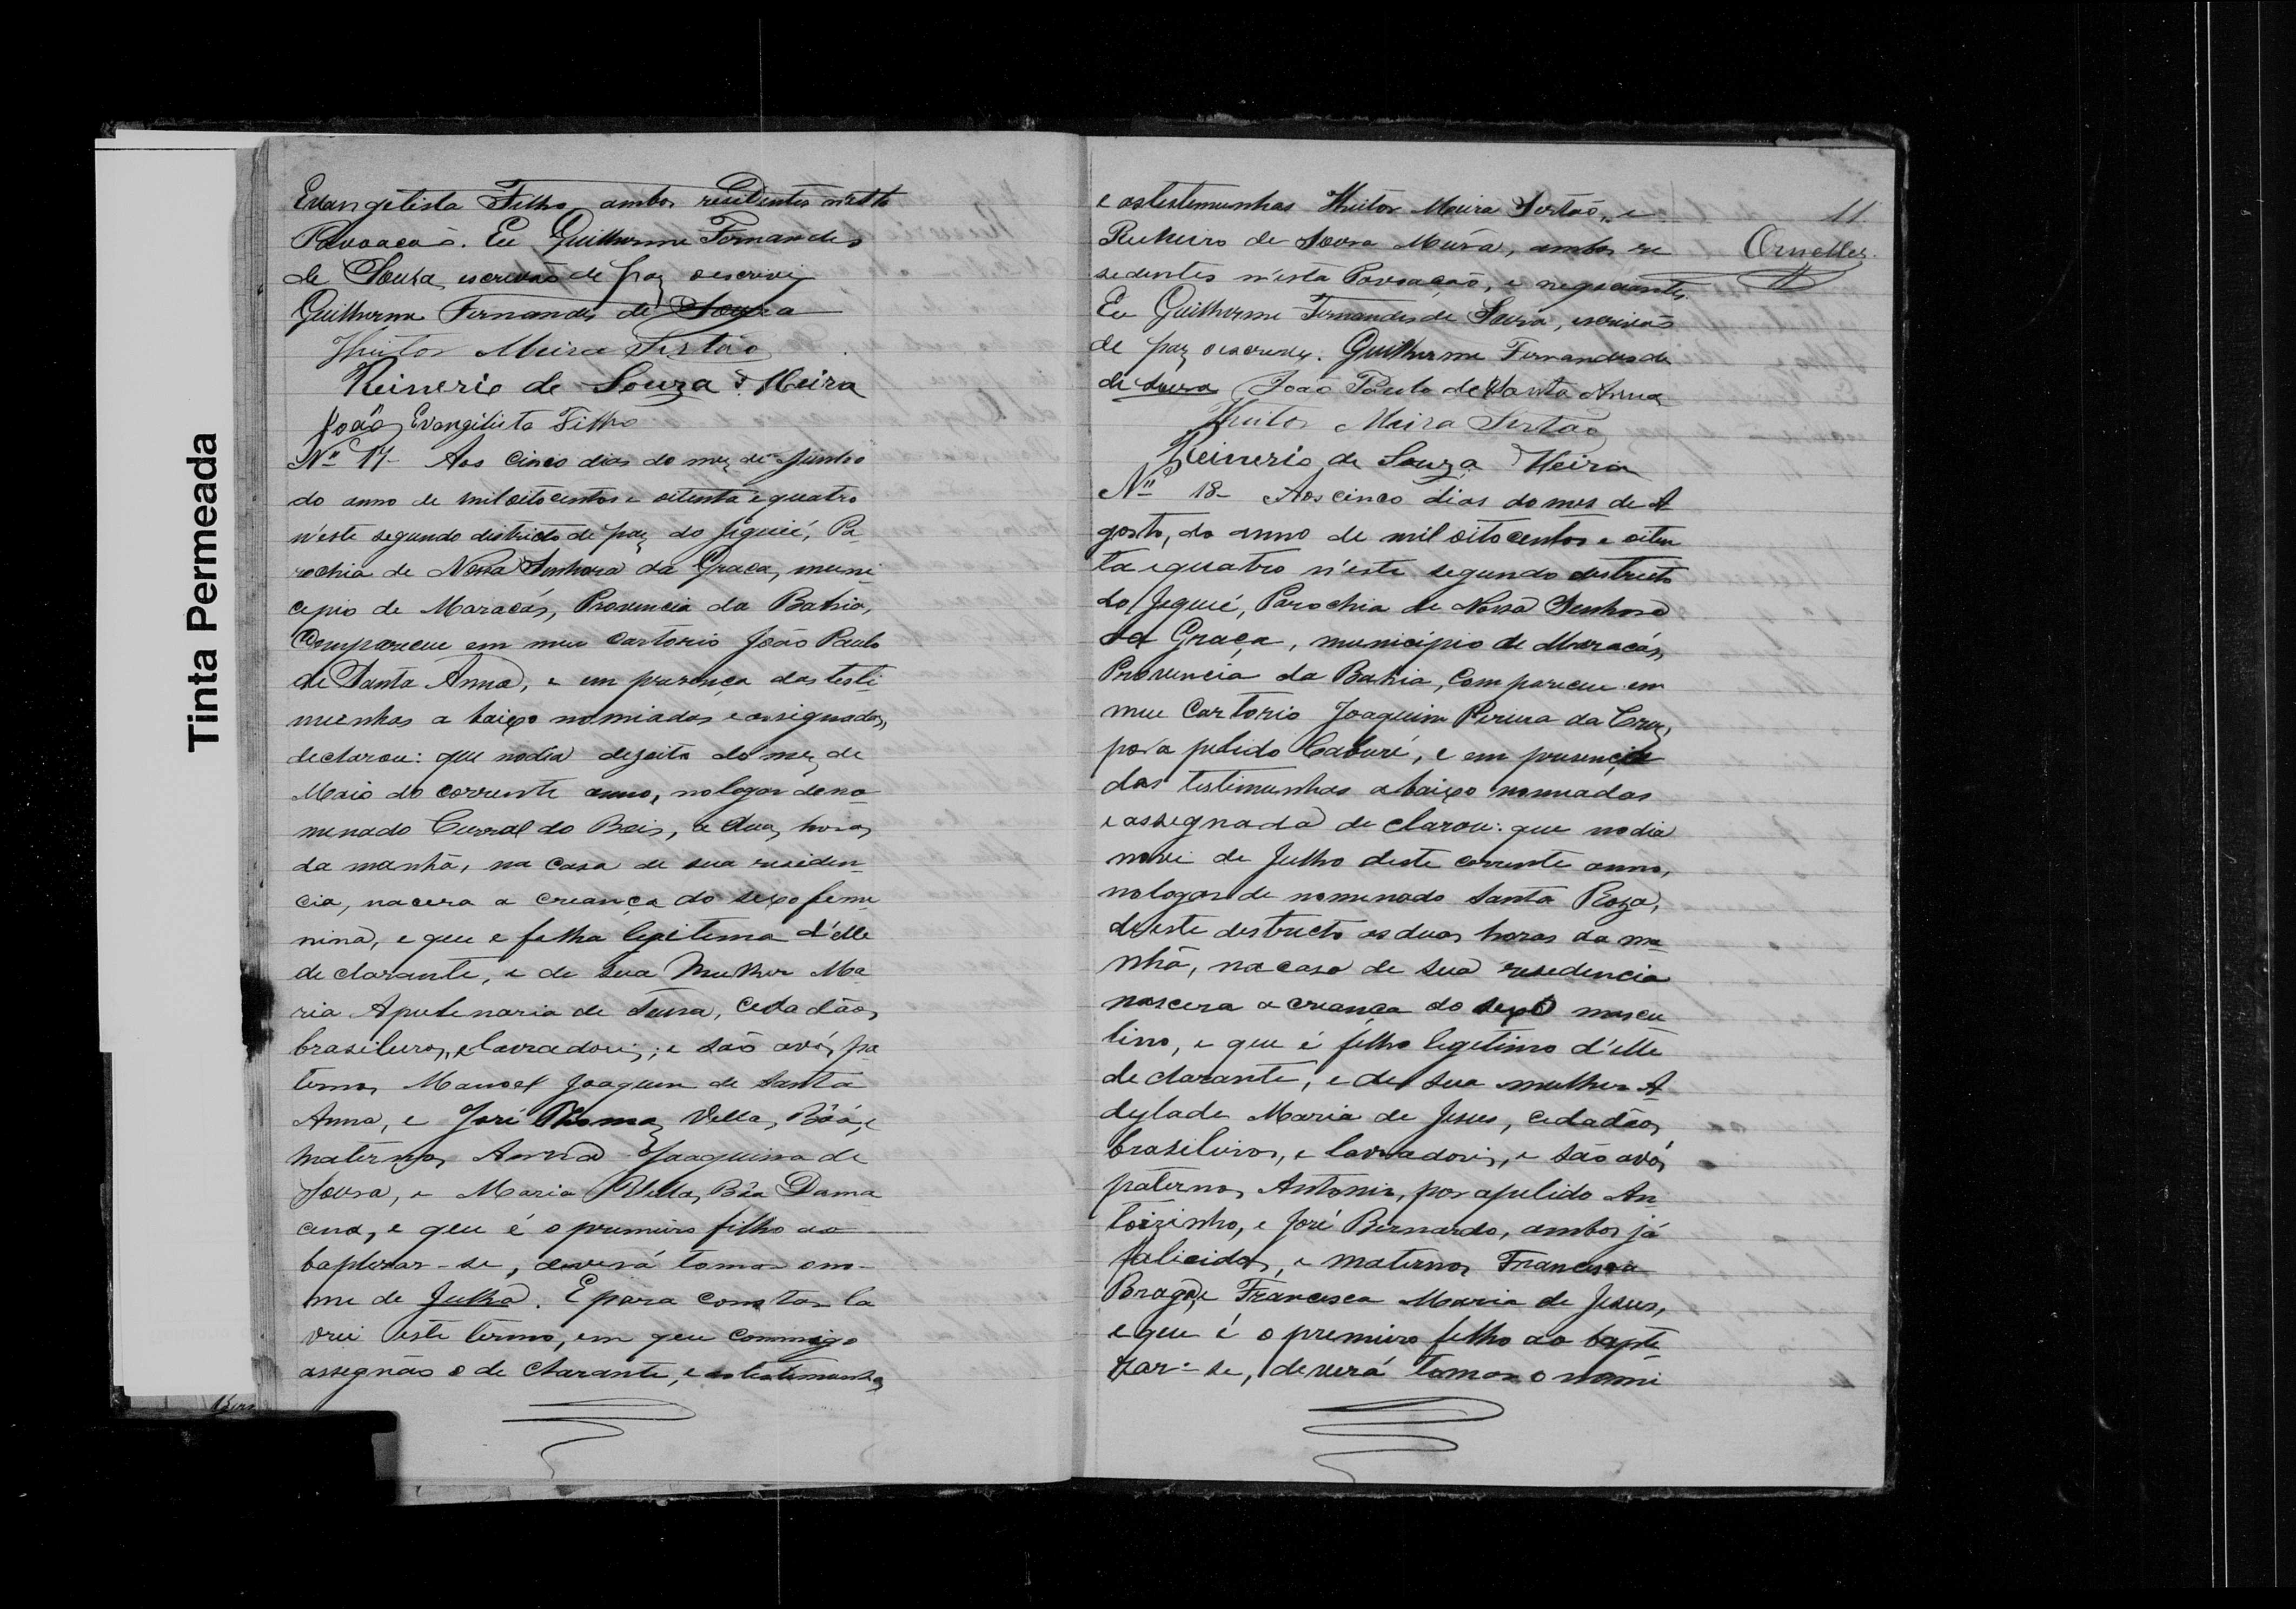 Tinta Permeada
Evangelista Filho ambos residentes n'esta
Povoacaõ. Eu Guilherme Fernandes
de Souza, escrivaõ de paz o escrevi
Guilherme Fernandes de Souza
Heitor Meira Sertão
Reinerio de Souza Meira
João Evangilista Filho
Nº 17- Aos cinco dias do mez de Junho
do anno de mil oitocentos e oitenta e quatro
n'este segundo districto de paz do Jiquié, Pa
rochia de Nossa Senhora da Graca, muni
cipio de Maracás, Provincia da Bahia,
Compareceu em meu Cartorio João Paulo
de Santa Anna, e em prezença das testi
munhas a baixo nomiadas e assignadas,
declarou: que no dia dezoito do mez de
Maio do corrente anno, no logar deno
minado Curral do Bois, a duas horas
da manhã, na casa de sua residen
cia, nacera a creança do sexo femi
nina, e que e filha legitema d'elle
declarante, e de sua Mulher Ma
ria de Souza, Cidadãos
brasileiros, e lavradores; e são avós pa
ternos Manoel Joaquim de Santa
Anna, e José Thomaz Villas Bôas, e
maternos Anna Joaquina de
Sousa, e Maria Villas Bôa Dama
cena, e que é o premeiro filho ao
baptezar-se, deverá tomar o no-
me de Julha. E para constar la
vrei este termo, em que commigo
assegnão o declarante, e as testemunhas
Bern
11
Ornelles
e as testemunhas Heitor Meira Sertão, e
Reineiro de Sousa Meira, ambos re
sedentes n'esta Povoação, e negociantes.
Eu Guilherme Fernandes de Sousa, escrivaõ
de paz o escrevi. Guilherme Fernandes de
de Souza João Paulo de Santa Anna
Heitor Meira Sertão
Reinerio de Souza Meira
Nº 18- Aos cinco dias do mes de A
gosto, do anno de mil oitocentos e oiten
ta e quatro n'este segundo destricto
do Jequié, Parochia de Nossa Senhora
da Graça, municipio de Maracás,
Provincia da Bahia, Compareceu em
meu Cartorio Joaquim Pereira da Cruz,
por a pelido Caburé, e em presença
das testimunhas a baixo nomeadas
e assegnada declarou: que no dia
nove de Julho deste corrente anno,
no logar denomenado Santa Roza,
d'este destricto as duas horas da ma
nhã, na casa de sua resedencia
nascera a creança do sexo mascu
lino, e que é filho legetimo d'elle
declarante, e de sua mulher A
dylade Maria de Jesus, cidadãos
brasileiros, e lavradores, e são avós
paternos Antonio, por apelido An
toizinho, e José Bernardo, ambos já
falicidos, e maternos Francisca
Braga, e Francisca Maria de Jesus,
e que é o premeiro filho ao bapte
zar-se, deverá tomar o nome